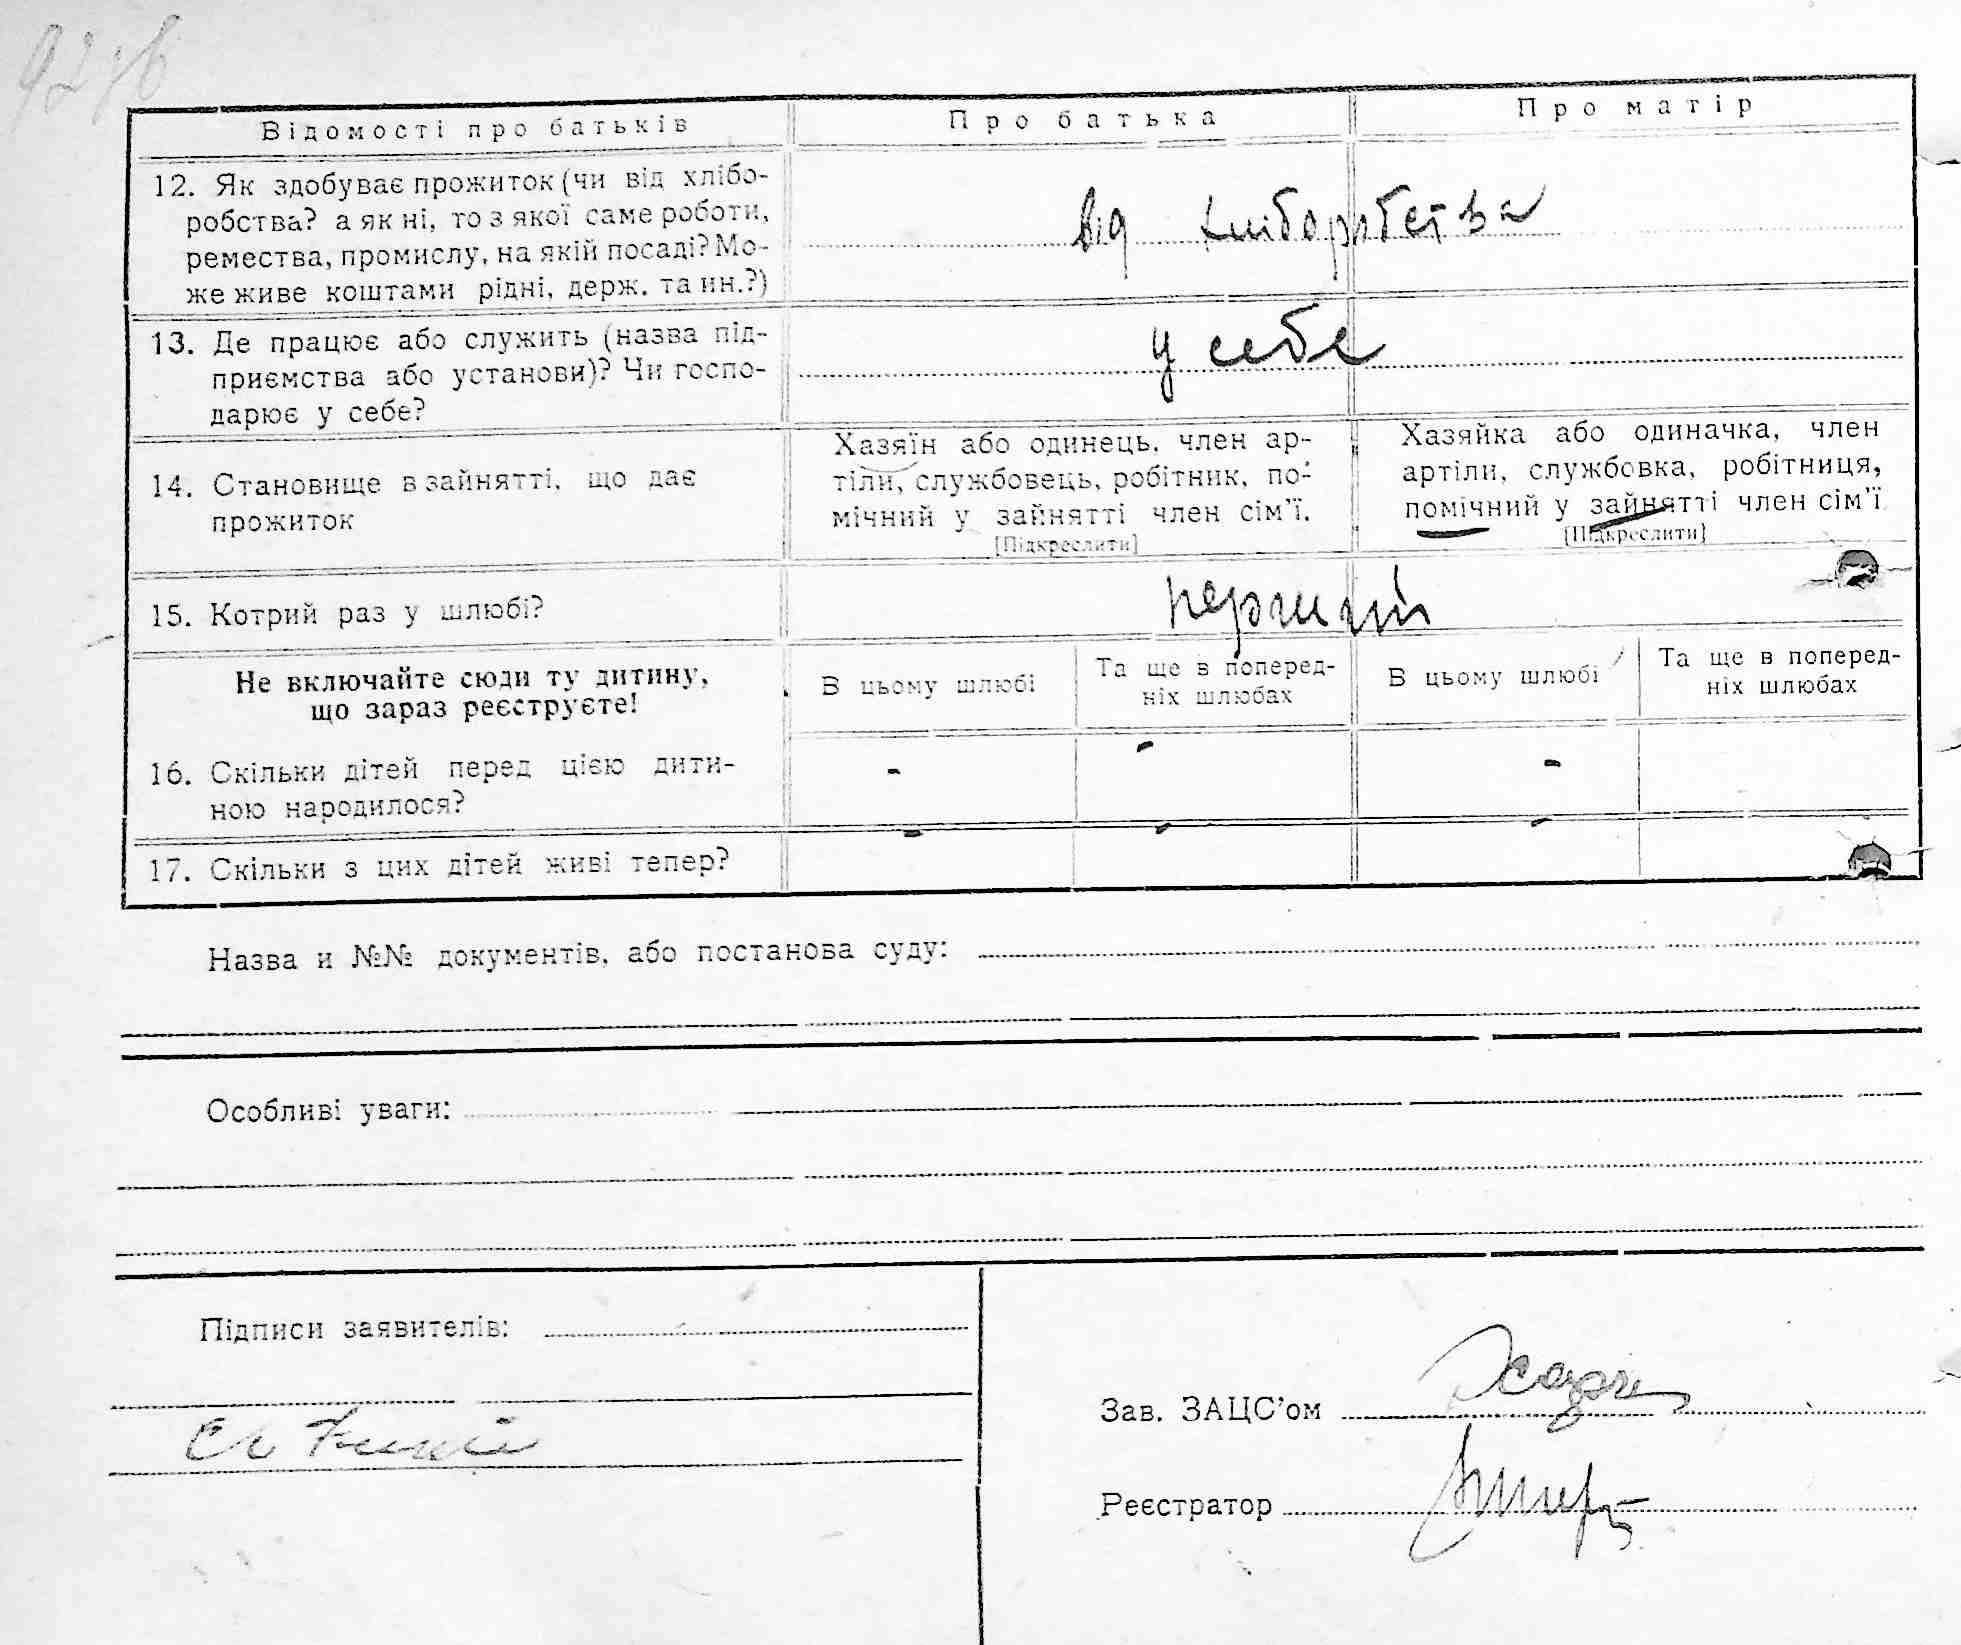 Відомості про батьків
Про батька
Про матір
12. Як здобуває прожиток (чи від хлібо-
робства? а як ні, то з якої саме роботи,
ремества, промислу, на якій посаді? Мо-
же живе коштами рідні, держ. та ин.?)
від хліборобства
13. Де працює або служить (назва під-
приємства або установи)? Чи госпо-
дарює у себе?
у себе
14. Становище в зайнятті, що дає
прожиток
Хазяїн або одинець, член ар-
тіли, службовець, робітник, по-
мічний у зайнятті член сім'ї.
[Підкреслити]
Хазяйка або одиначка, член
артіли, службовка, робітниця,
помічний у зайнятті член сім'ї
[Підкреслити]
15. Котрий раз у шлюбі?
перший
Не включайте сюди ту дитину,
що зараз реєструєте!
В цьому шлюбі
Та ще в поперед-
ніх шлюбах
В цьому шлюбі
Та ще в поперед-
ніх шлюбах
16. Скільки дітей перед цією дити-
ною народилося?
- - -
17. Скільки з цих дітей живі тепер?
- - -
Назва и №№ документів, або постанова суду:
Особливі уваги:
Підписи заявителів:
Зав. ЗАЦС'ом
Реєстратор